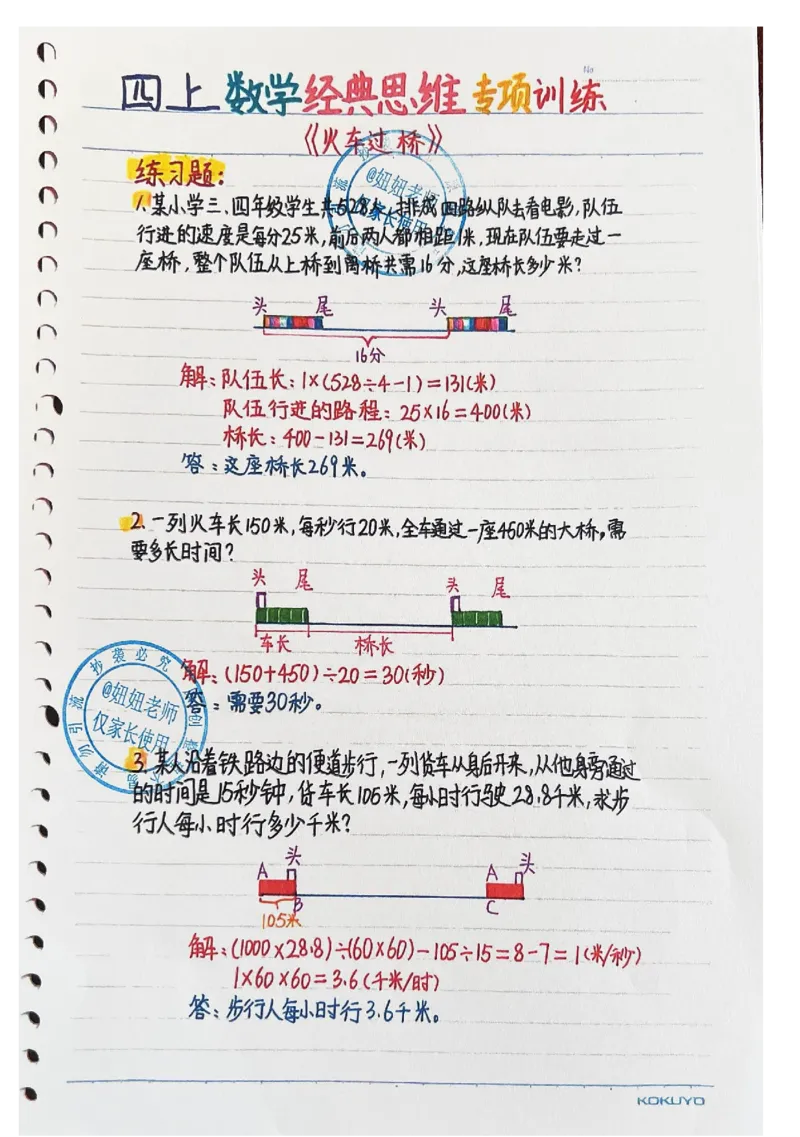 No
四上数学经典思维专项训练
《火车过桥》
练习题:
1.某小学三、四年级学生共528人,排成四路纵队去看电影,队伍
行进的速度是每分25米,前后两人都相距1米,现在队伍要走过一
座桥,整个队伍从上桥到离桥共需16分,这座桥长多少米?
头 尾 头 尾
16分
解:队伍长:1×(528÷4-1)=131(米)
队伍行进的路程:25×16=400(米)
桥长:400-131=269(米)
答:这座桥长269米。
2.一列火车长150米,每秒行20米,全车通过一座460米的大桥,需
要多长时间?
头 尾 头 尾
车长 桥长
解:(150+450)÷20=30(秒)
答:需要30秒。
3.某人沿着铁路边的便道步行,一列货车从身后开来,从他身旁通过
的时间是15秒钟,货车长105米,每小时行驶28.8千米,求步
行人每小时行多少千米?
A 头 A 头
B C
105米
解:(1000×28.8)÷(60×60)-105÷15=8-7=1(米/秒)
1×60×60=3.6(千米/时)
答:步行人每小时行3.6千米。
@妞妞老师
仅家长使用
@妞妞老师
仅家长使用
请勿引流
抄袭必究
KOKUYO